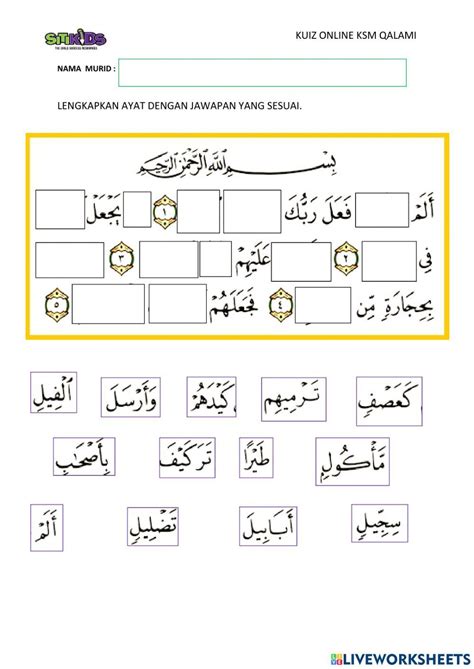 SiTiKiDS
KUIZ ONLINE KSM QALAMI
NAMA MURID :
LENGKAPKAN AYAT DENGAN JAWAPAN YANG SESUAI.
بِسْمِ اللَّهِ الرَّحْمَٰنِ الرَّحِيمِ
أَلَمْ فَعَلَ رَبُّكَ ١ يَجْعَلْ
فِي ٢ عَلَيْهِمْ ٣
بِحِجَارَةٍ مِّن ٤ فَجَعَلَهُمْ ٥
كَعَصْفٍ تَرْمِيهِم كَيْدَهُمْ وَأَرْسَلَ الْفِيلِ
مَّأْكُولٍ طَيْرًا تَرَكَيْفَ بِأَصْحَابِ
سِجِّيلٍ أَبَابِيلَ تَضْلِيلٍ أَلَمْ
LIVEWORKSHEETS